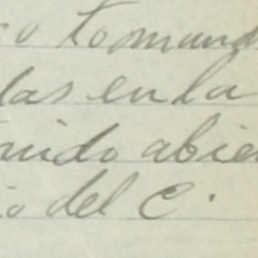 o tomand
das en la
nido abie
io del C.